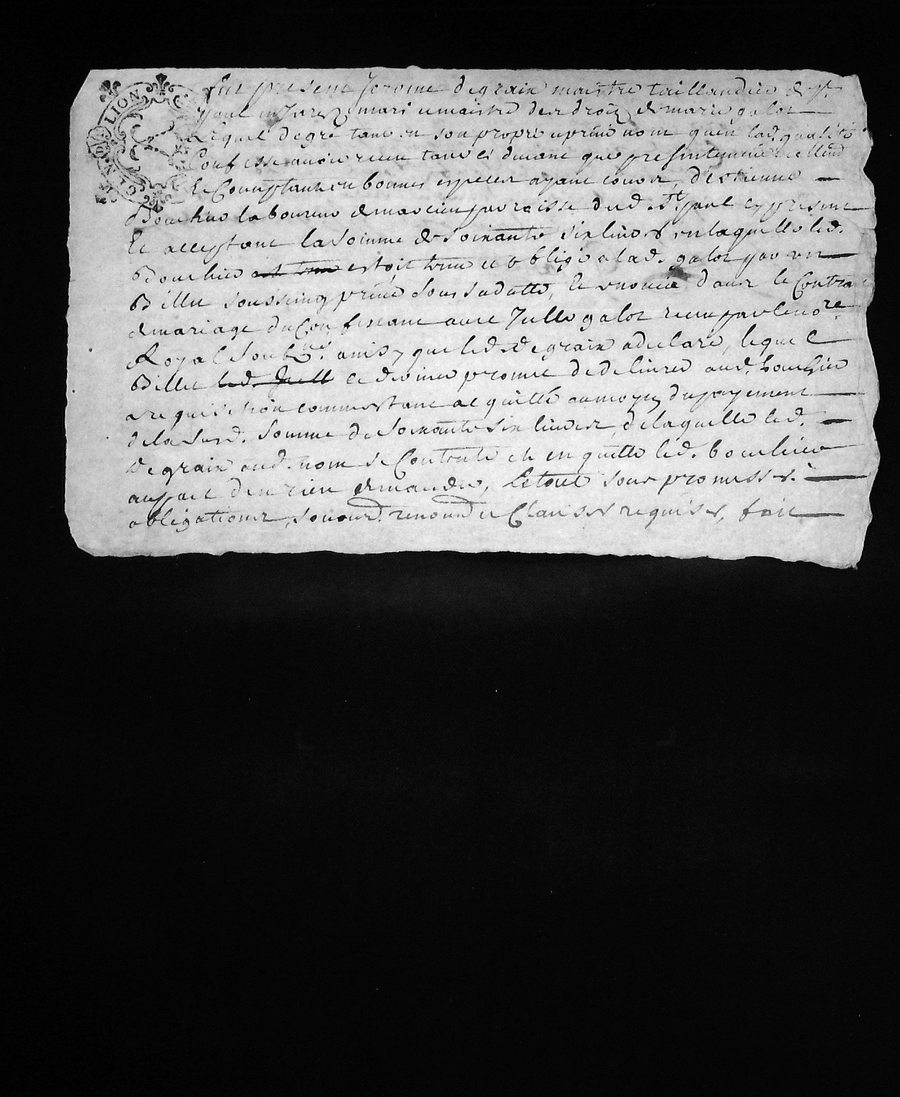 GEN. DE LION
Fut present Jerome degrain maistre taillandier de St
paul en Jarez mari et maistre des droiz de marie galot
Lequel de gré tant en son propre et privé nom qu'en lad. qualité
Confesse avoir receu tant cy devant que presentement
et Comptant en bonnes especes ayant cours, d'estienne
Bouchut laboureur de paroisse dud. St paul cy present
Et acceptant la somme de soixante six livres en laquelle led.
Bouchut estoit tenu et obligé a lad. galot par un
Billet sousseing privé sous sa datte, et enoncé dans le Contrat
de mariage du Confessant avec Jalle galot receu par le no.re
Royal Soub.né ainsy que led. degrain a declaré, lequel
Billet led. ce devine promet de delivrer aud. bouchut
a requisition comme estant acquitté au moyen du payement
de la susd. somme de soixante six livres de laquelle led.
degrain aud. nom se Contente et en quitte led. bouchut
avec pact de n'en rien demander, Letout sous promesses
obligations, renon.on et Clauses requises, fait